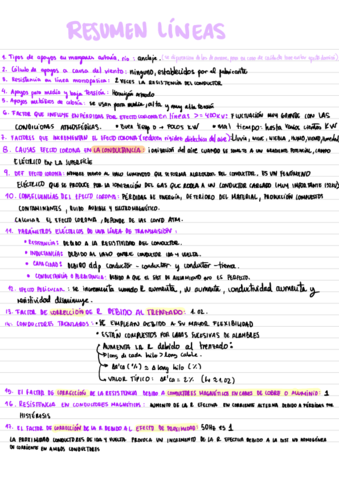 RESUMEN LÍNEAS
1. Tipos de apoyos en
2. Cálculo de apoyos a causa del viento: ninguno, establecidos por el fabricante
3. Resistencia en línea monofásica: 2 veces la resistencia del conductor
4. Apoyos para media y baja tensión: hormigón armado
5. Apoyos metálicos de celosía: se usan para media, alta y muy alta tensión
6. FACTOR QUE INFLUYE EN PÉRDIDAS POR EFECTO CORONA EN líneas > 400kV: FLUCTUACIÓN MUY GRANDE CON LAS
CONDICIONES ATMOSFÉRICAS. • Buen tiempo → POCOS KW • Mal tiempo: hasta varios cientos KW
7. FACTORES QUE INCREMENTAN EL EFECTO CORONA (reducen rigidez dieléctrica del aire): lluvia, nieve, niebla, humo,
8. CAUSAS EFECTO CORONA EN LA CONDUCTANCIA: ionización del aire cuando se somete a un gradiente potencial, campo
ELÉCTRICO EN LA SUPERFICIE
9. DEF EFECTO CORONA: LUMINOSO QUE ALREDEDOR DEL CONDUCTOR. ES UN FENÓMENO
ELÉCTRICO QUE SE PRODUCE POR LA IONIZACIÓN DEL GAS QUE RODEA A UN CONDUCTOR CARGADO
10. CONSECUENCIAS DEL EFECTO CORONA: PÉRDIDAS DE ENERGÍA, DETERIORO DEL MATERIAL, PRODUCCIÓN COMPUESTOS
CONTAMINANTES, RUIDO AUDIBLE Y ELECTROMAGNÉTICO.
CALCULAR EL EFECTO CORONA, DEPENDE DE LAS COND ATM.
11. PARÁMETROS ELÉCTRICOS DE UNA LÍNEA DE TRANSMISIÓN:
• RESISTENCIAS: DEBIDO A LA RESISTIVIDAD DEL CONDUCTOR.
• INDUCTANCIAS: DEBIDO AL LAZO ENTRE CONDUCTOR IDA Y VUELTA.
• CAPACIDAD: DEBIDO ddp conductor - conductor y conductor - tierra.
• CONDUCTANCIA O PERDITANCIA: DEBIDO A QUE EL DE AISLAMIENTO NO ES PERFECTO.
12. EFECTO PELICULAR: se incrementa cuando f aumenta, μ aumenta, conductividad aumenta y
resistividad disminuye.
13. FACTOR DE CORRECCIÓN DE R DEBIDO AL TRENZADO: 1.02.
14. CONDUCTORES TRENZADOS: • SE EMPLEAN DEBIDO A SU MAYOR FLEXIBILIDAD
• ESTÁN COMPUESTOS POR CAPAS SUCESIVAS DE ALAMBRES
• AUMENTA LA R debido al trenzado:
long de cada hilo > long cable.
VALOR TÍPICO: = 2%
15. EL FACTOR DE CORRECCIÓN DE LA RESISTENCIA DEBIDO A CONDUCTORES MAGNÉTICOS EN CABLES DE COBRE O ALUMINIO: 1
16. RESISTENCIA EN CONDUCTORES MAGNÉTICOS: AUMENTO DE LA R EFECTIVA EN CORRIENTE ALTERNA DEBIDO A PÉRDIDAS POR
HISTÉRESIS
17. EL FACTOR DE CORRECCIÓN DE LA R DEBIDO AL EFECTO DE PROXIMIDAD: 50Hz ES 1
LA PROXIMIDAD CONDUCTORES DE IDA Y VUELTA PROVOCA UN INCREMENTO DE LA R EFECTIVA DEBIDO A LA DIST NO HOMOGÉNEA
DE CORRIENTE EN AMBOS CONDUCTORES